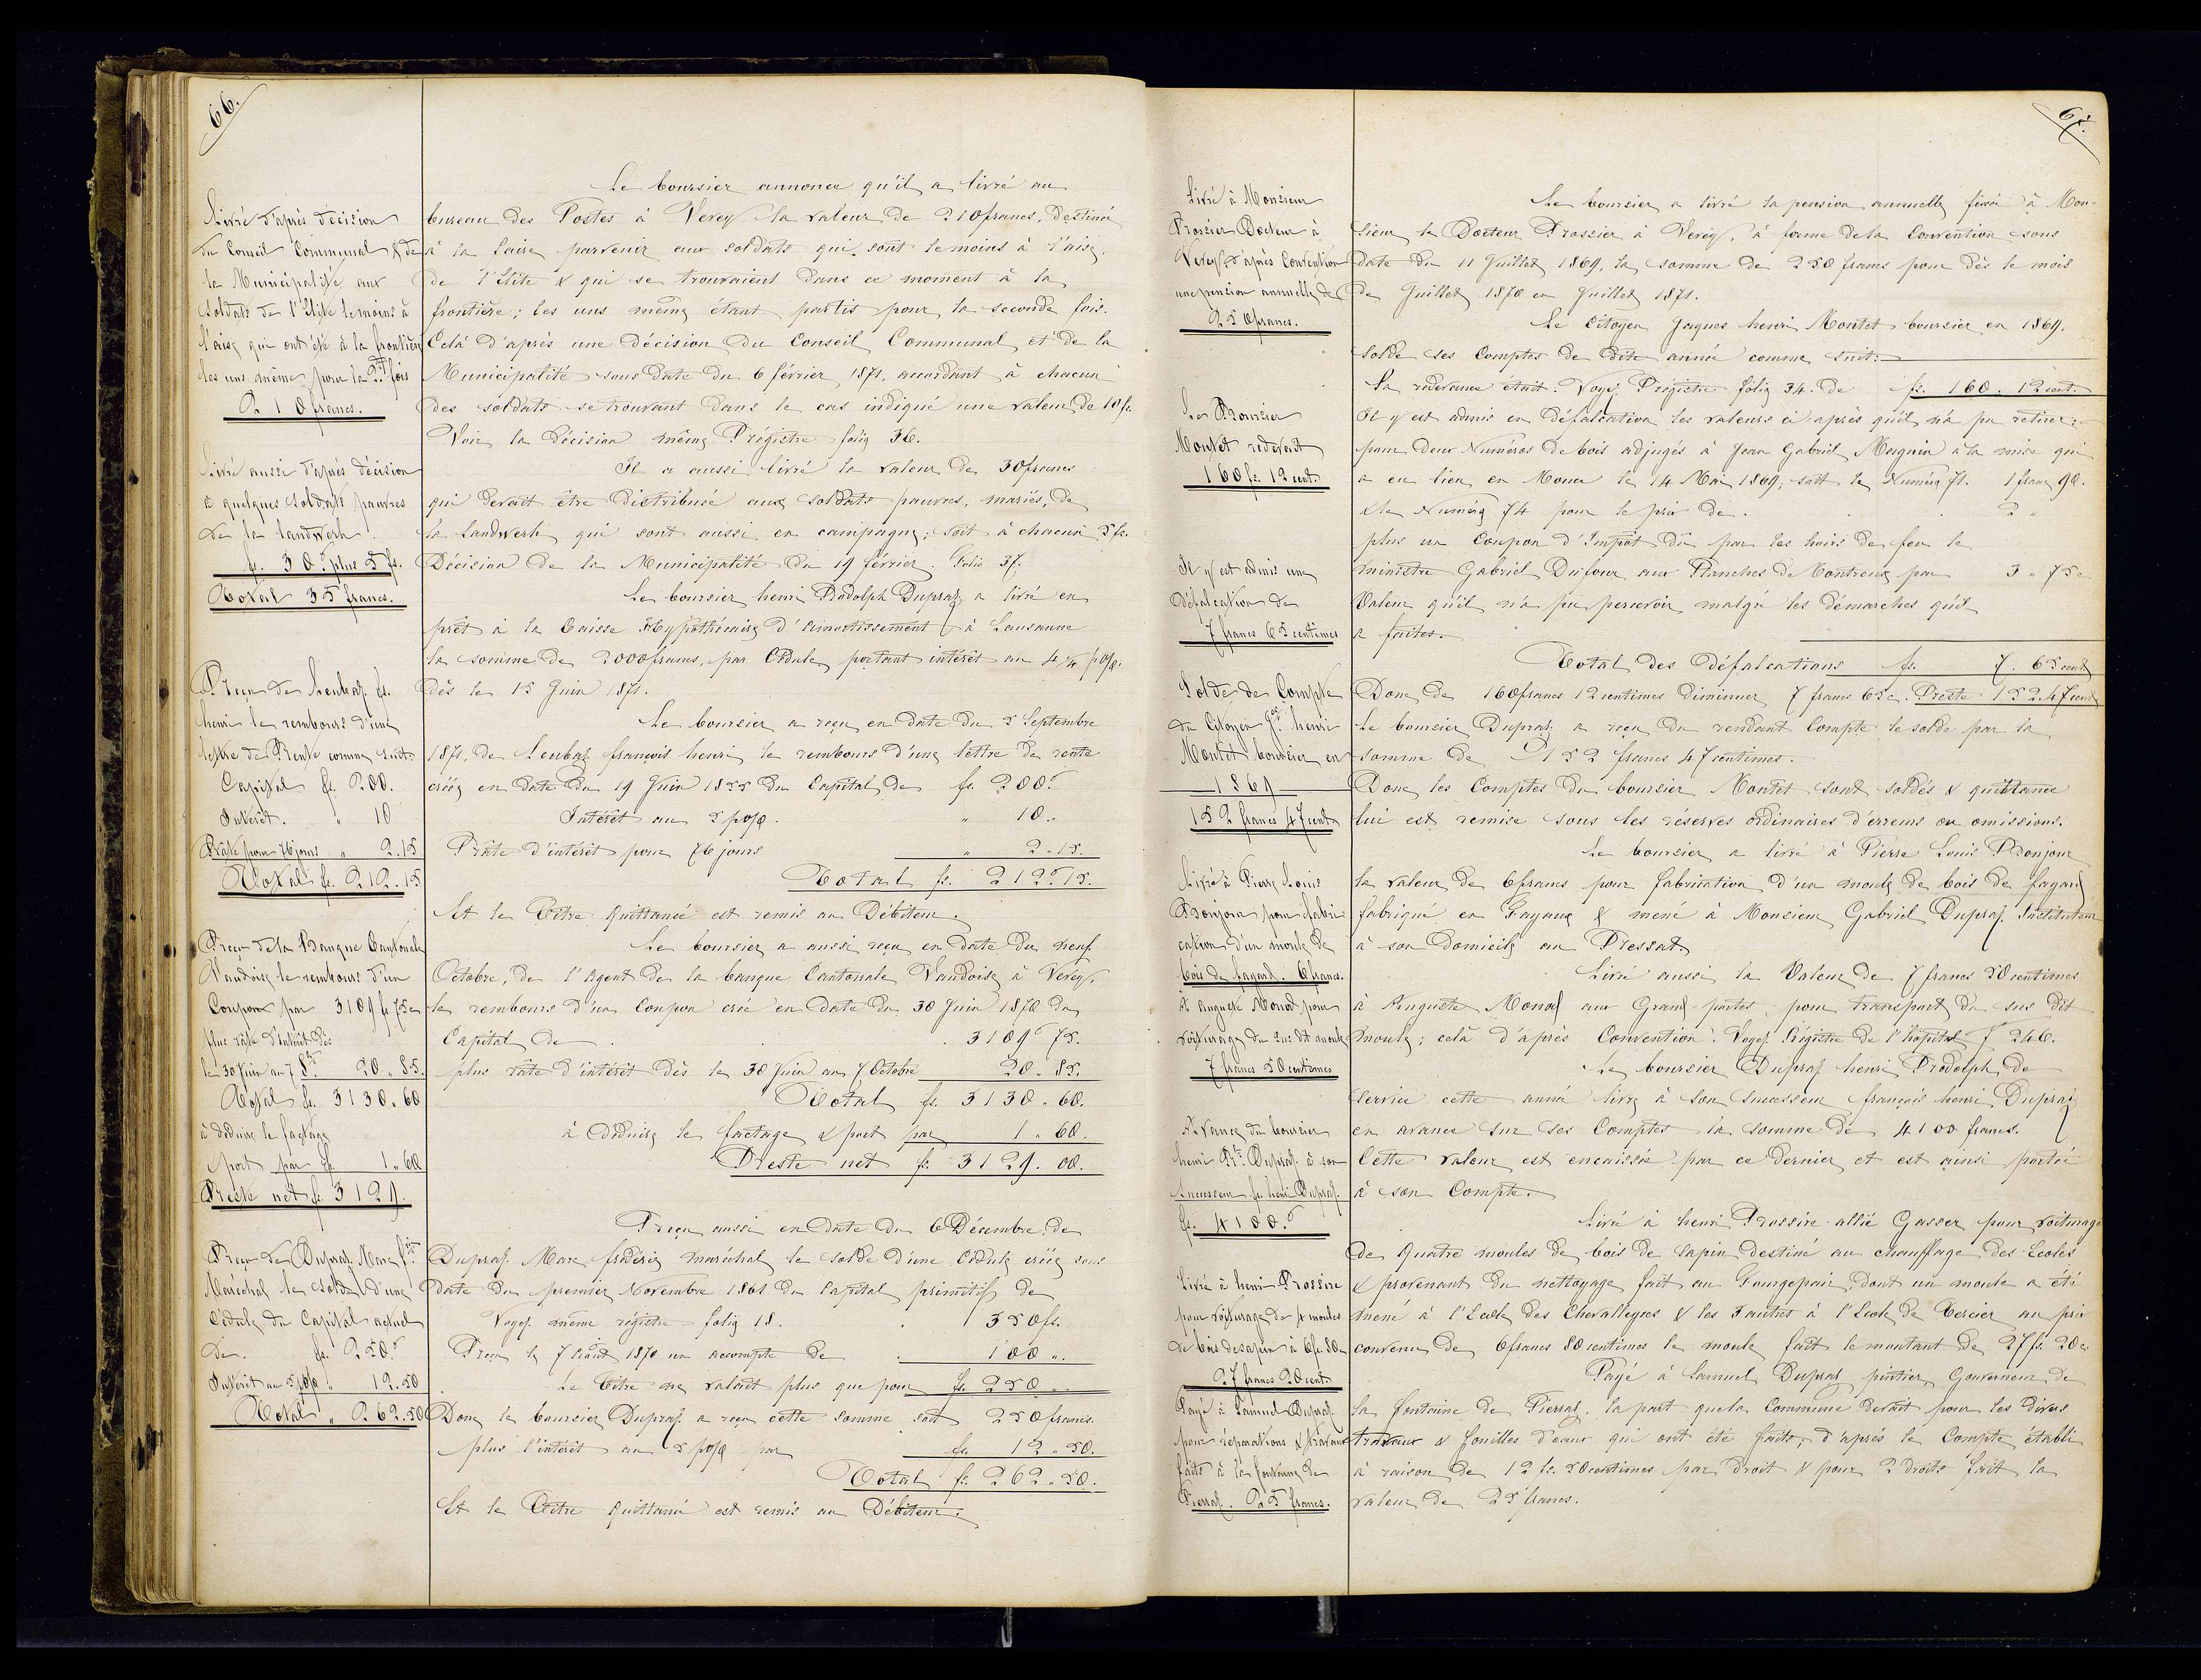 66.
Livré d'après décision
du Conseil Communal & de
la Municipalité, aux
soldats de l'Elite le moins à
l'aise qui ont été à la frontière
les uns même pour la 2de fois
210 francs.
Livré aussi d'après décision
à quelques soldats pauvres
de la landwerh.
fs. 30. plus 5 fs.
Total 35 francs.
Reçu de Leubaz fs.
henri le rembours d'une
lettre de Rente comme suit:
Capital fs. 200.
Intérêt. " 10
Râte pour 76 jours " 2.15
Total fs. 212.15
Reçu de la Banque Cantonale
Vaudoise le rembours d'un
Coupon par 3109 fs 75 c
plus râte d'intérêt dès
le 30 Juin au 7 8bre 20 " 85.
Total fs. 3130.60
à déduire le factage
port par fs. 1.60
Reste net fs. 3129.
Reçu de Dupraz Marc fric
Maréchal le solde d'une
Cédule du Capital actuel
de. fs. 250.
Intérêt au 5 p% " 12.50
Total " 262.50
Le boursier annonce qu'il a livré au
bureau des Postes à Vevey la valeur de 210 francs, destinée
à la faire parvenir aux soldats qui sont le moins à l'aise,
de l'Elite & qui se trouvaient dans ce moment à la
frontière; les uns même étant partis pour la seconde fois.
Celà d'après une décision du Conseil Communal et de la
Municipalité sous date du 6 février 1871, accordant à chacun
des soldats se trouvant dans le cas indiqué une valeur de 10 fs.
Voir la décision même Régistre folio 36.
Il a aussi livré la valeur de 30 francs
qui devait être distribuée aux soldats pauvres, mariés, de
la Landwerh qui sont aussi en campagne; soit à chacun 5 fs.
Décision de la Municipalité du 19 février. Folio 37.
Le boursier henri Rodolph Dupraz a livré en
prêt à la Caisse Hypothécaire d'amortissement à Lausanne
la somme de 2000 francs, par Cédule portant intérêt au 4 1/4 p%.
dès le 15 Juin 1871.
Le boursier a reçu en date du 5 Septembre
1871, de Leubaz françois henri le rembours d'une lettre de rente
créée en date du 19 Juin 1855 du Capital de fs. 200.
Intérêt au 5 p%. " 10..
Râte d'intérêt pour 76 jours " 2.15.
Total fs. 212.15.
Et le Titre quittancé est remis au Débiteur.
Le boursier a aussi reçu en date du neuf
Octobre, de l'Agent de la banque Cantonale Vaudoise à Vevey,
le rembours d'un Coupon créé en date du 30 Juin 1870 du
Capital de . . . 3109 75.
plus râte d'intérêt dès le 30 Juin au 7 Octobre 20 " 85.
Total fs. 3130 " 60.
à déduire le factage & port par 1 " 60.
Reste net fs. 3129. 00.
Reçu aussi en date du 6 Décembre, de
Dupraz Marc frédéric maréchal le solde d'une Cédule créée sous
date du premier Novembre 1861 du Capital primitif de
Voyez même régistre folio 18. . 350 fs.
Reçu le 7 Août 1870 un accompte de . 100 ".
Le Titre ne valait plus que pour fs. 250 ".
Donc le boursier Dupraz a reçu cette somme soit 250 francs.
plus l'intérêt au 5 p% par fs. 12 " 50.
Total fs. 262 " 50.
Et le Titre quittancé est remis au Débiteur.
67.
Livré à Monsieur
Rossier Docteur à
Vevey d'après Convention
une pension annuelle de
250 francs.
Le Boursier
Montet redevait
160 fs. 12 cent.
Il y est admis une
défalcation de
7 francs 65 centimes
Solde de Compte
du Citoyen Jqs henri
Montet boursier en
1869
152 francs 47 cent.
Livré à Pierre Louis
Bonjour pour fabri-
cation d'un moule de
bois de fayard. 6 francs.
A Auguste Monod pour
voiturage du sus dit moule
7 francs 50 centimes
Avance du boursier
henri Rd. Dupraz à son
Successeur fs henri Dupraz.
fs. 4100.
Livré à henri Rossire
pour voiturage de 4 moules
de bois de sapin à 6 fr. 80 c
27 francs 20 cent.
Payé à Samuel Dupraz
pour réparations & travaux
faits à la fontaine de
Pierraz. 25 francs.
Le boursier a livré la pension annuelle fixée à Mon-
sieur le Docteur Rossier à Vevey, à forme de la Convention sous
date du 11 Juillet 1869, la somme de 250 francs pour dès le mois
de Juillet 1870 en Juillet 1871.
Le Citoyen Jaques henri Montet boursier en 1869.
solde ses Comptes de dite année comme suit:
Sa redevance était. Voyez Régistre folio 34. de fs. 160. 12 cent.
Il y est admis en défalcation les valeurs ci-après qu'il n'a pu retirer:
pour deux Numéros de bois adjugés à Jean Gabriel Maguin à la mise qui
a eu lieu en Mouca le 14 Mai 1869, soit le Numéro 71. 1 franc 90.
& le Numéro 74 pour le prix de . . 2 "
plus un Coupon d'Impôt dû par les hoirs de feu le
ministre Gabriel Dufour aux Planches de Montreux par 3 " 75 c
Valeur qu'il n'a pu percevoir malgré les démarches qu'il
a faites.
Total des défalcations fs. 7. 65 cent
Donc de 160 francs 12 centimes diminuer 7 francs 65 c. Reste 152.47 cent
Le boursier Dupraz a reçu du rendant Compte le solde par la
somme de 152 francs 47 centimes.
Donc les Comptes du boursier Montet sont soldés & quittance
lui est remise sous les réserves ordinaires d'erreurs ou omissions.
Le boursier a livré à Pierre Louis Bonjour
la valeur de 6 francs pour fabrication d'un moule de bois de fayard
fabriqué en Fayaux & mené à Monsieur Gabriel Dupraz Instituteur
à son domicile au Pressat.
Livré aussi la Valeur de 7 francs 50 centimes
à Auguste Monod aux Grand-portes, pour transport du sus dit
moule; celà d'après Convention. Voyez Régistre de l'hôpital f° 246.
Le boursier Dupraz henri Rodolph, de
service cette année livre à son Successeur françois henri Dupraz
en avance sur ses Comptes la somme de 4100 francs.
Cette valeur est encaissée par ce dernier et est ainsi portée
à son Compte.
Livré à henri Rossire allié Gasser pour voiturage
de quatre moules de bois de sapin destiné au chauffage des Ecoles
& provenant du nettoyage fait au Fourgepair, dont un moule a été
mené à l'Ecole des Chevalleyres & les 3 autres à l'Ecole de Tercier au prix
convenu de 6 francs 80 centimes le moule fait le montant de 27 fs. 20 c.
Payé à Samuel Dupraz pintier Gouverneur de
la fontaine de Pierraz, la part que la Commune devait pour les divers
travaux & fouilles d'eaux qui ont été faits; d'après le Compte établi
à raison de 12 fs. 50 centimes par droit & pour 2 droits fait la
valeur de 25 francs.